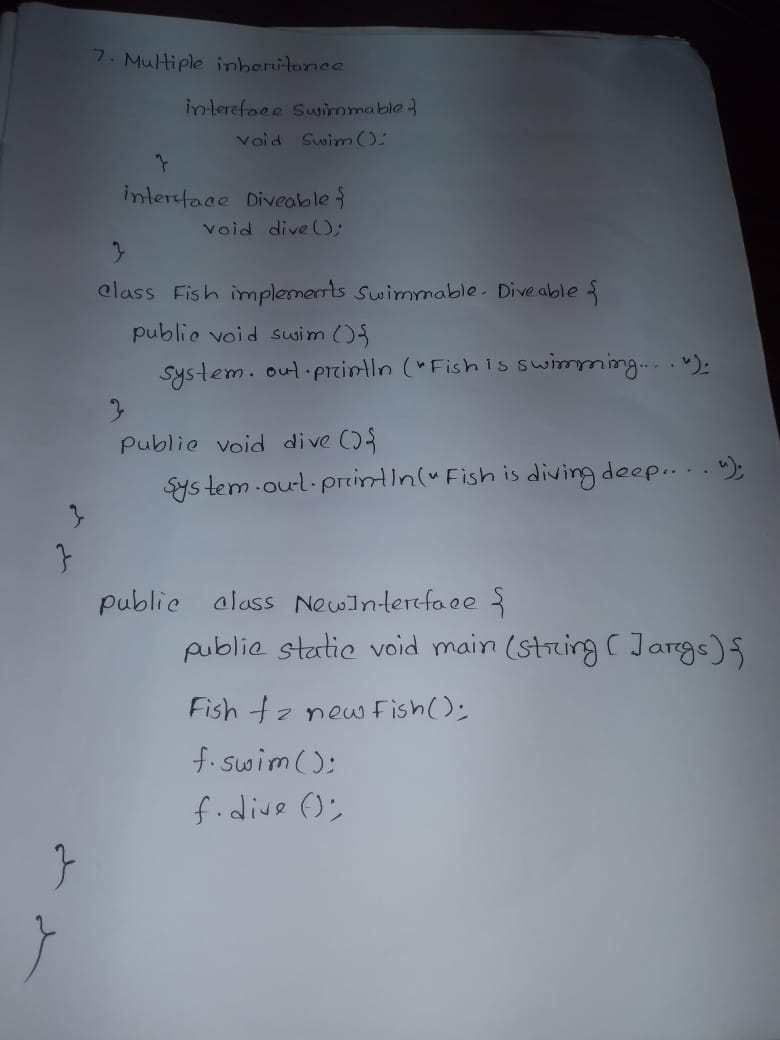 7. Multiple inheritance
interface Swimmable {
void Swim();
}
interface Diveable {
void dive();
}
class Fish implements Swimmable, Diveable {
public void swim () {
System. out.println ("Fish is swimming....");
}
public void dive () {
System.out.println("Fish is diving deep.....");
}
}
public class NewInterface {
public static void main (String [ ] args) {
Fish f = new Fish();
f. swim();
f. dive ();
}
}